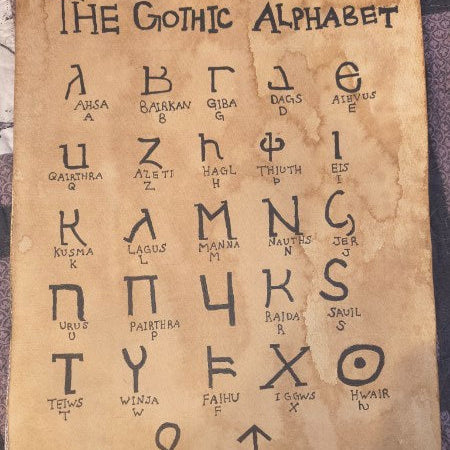 THE GOTHIC ALPHABET
𐌰 𐌱 𐌲 𐌳 𐌴
AHSA BAIRKAN GIBA DAGS AIHVUS
A B G D E
𐌵 𐌶 𐌷 𐌸 𐌹
QAIRTHRA AZETI HAGL THIUTH EIS
Q Z H Þ I
𐌺 𐌻 𐌼 𐌽 𐌾
KUSMA LAGUS MANNA NAUTHS JER
K L M N J
𐌿 𐍀 𐍁 𐍂 𐍃
URUS PAIRTHRA RAIDA SAUIL
U P R S
𐍄 𐍅 𐍆 𐍇 𐍈
TEIWS WINJA FAIHU IGGWS HWAIR
T W F X ƕ
𐍉 𐍊